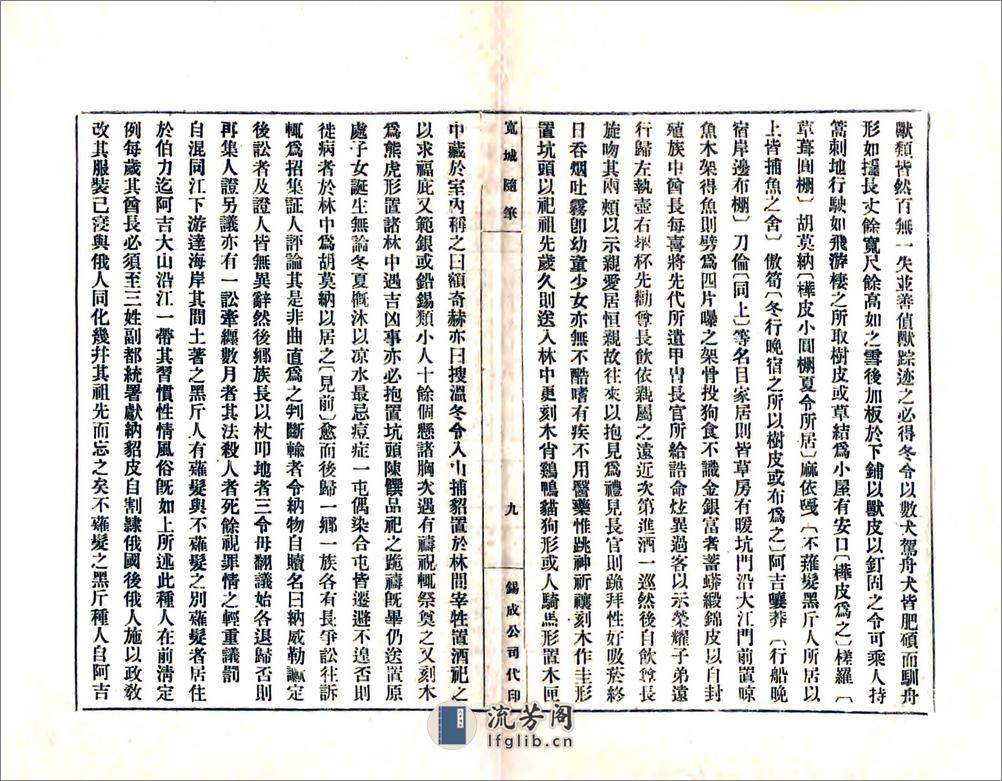 獸類皆然百無一失並善偵獸踪迹之必得冬令以數犬駕舟犬皆肥碩而馴舟
形如撬長丈餘寬尺餘高如之雪後加板於下鋪以獸皮以釘固之令可乘人持
篙刺地行駛如飛游棲之所取樹皮或草結爲小屋有安口〔樺皮爲之〕槎羅〔
草葺圓棚〕胡莫納〔樺皮小圓棚夏令所居〕麻依嘎〔不薙髮黑斤人所居以
上皆捕魚之舍〕傲筍〔冬行晚宿之所以樹皮或布爲之〕阿吉嚷葬〔行船晚
宿岸邊布棚〕刀倫〔同上〕等名目家居則皆草房有暖坑門沿大江門前置晾
魚木架得魚則劈爲四片曝之架骨投狗食不識金銀富者蓄蟒緞錦皮以自封
殖族中酋長每喜將先代所遺甲胄長官所給誥命炫異過客以示榮耀子弟遠
行歸左執壺右擎杯先勸尊長飲依親屬之遠近次第進酒一巡然後自飲尊長
旋吻其兩頰以示親愛居恒親故往來以抱見爲禮見長官則跪拜性好吸菸終
日吞烟吐霧卽幼童少女亦無不酷嗜有疾不用醫藥惟跳神祈禳刻木作圭形
置坑頭以祀祖先歲久則送入林中更刻木肖鷄鴨貓狗形或人騎馬形置木匣
寬城隨筆
九
錫成公司代印
中藏於室內稱之曰額奇赫亦曰搜溫冬令入山捕貂置於林間宰牲置酒祀之
以求福庇又範銀或鉛錫類小人十餘個懸諸胸次遇有禱祝輒祭奠之又刻木
爲熊虎形置諸林中遇吉凶事亦必抱置坑頭陳饌品祀之跪禱旣畢仍送置原
處子女誕生無論冬夏槪沐以凉水最忌痘症一屯偶染合屯皆遷避不遑否則
徙病者於林中爲胡莫納以居之〔見前〕愈而後歸一鄉一族各有長爭訟往訴
輒爲招集証人評論其是非曲直爲之判斷輸者令納物自贖名曰納威勒讞定
後訟者及證人皆無異辭然後鄉族長以杖叩地者三令毋翻議始各退歸否則
再集人證另議亦有一訟牽纏數月者其法殺人者死餘視罪情之輕重議罰
自混同江下游達海岸其間土著之黑斤人有薙髮與不薙髮之別薙髮者居住
於伯力迄阿吉大山沿江一帶其習慣性情風俗旣如上所述此種人在前淸定
例每歲其酋長必須至三姓副都統署獻納貂皮自割隸俄國後俄人施以政敎
改其服裝已寖與俄人同化幾幷其祖先而忘之矣不薙髮之黑斤種人自阿吉
流芳阁
lfglib.cn